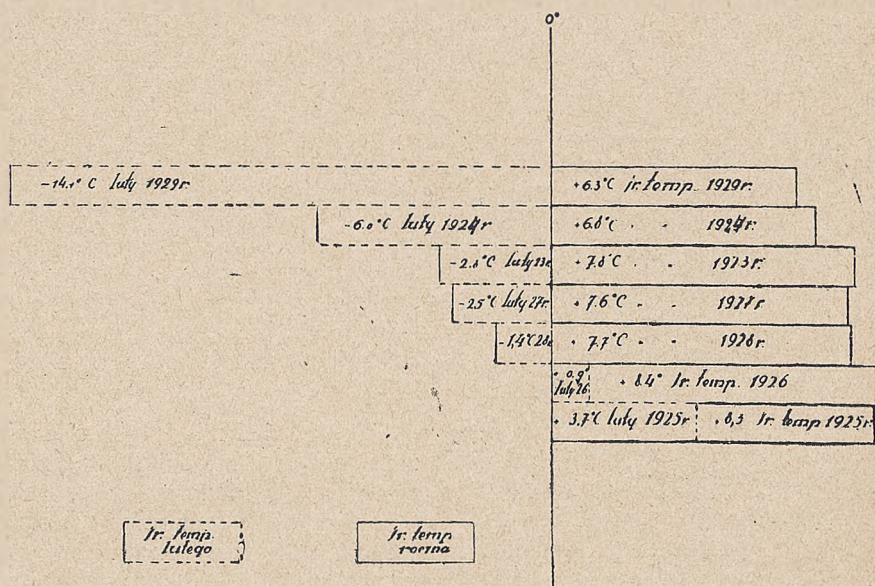 0°
-14.1° C luty 1929r. +6.3°C śr. temp. 1929r.
-6.0°C luty 1924r +6.8°C " " 1924r.
-2.8°C luty 23r +7.8°C " " 1923r.
-2.5°C luty 27r. +7.6°C " " 1927r.
-1,4°C 28r +7.7°C " " 1928r.
+0.9° luty 26 +8.4° śr. temp. 1926
+3.7°C luty 1925r +8,3 śr. temp 1925r.
śr. temp. lutego
śr. temp roczna